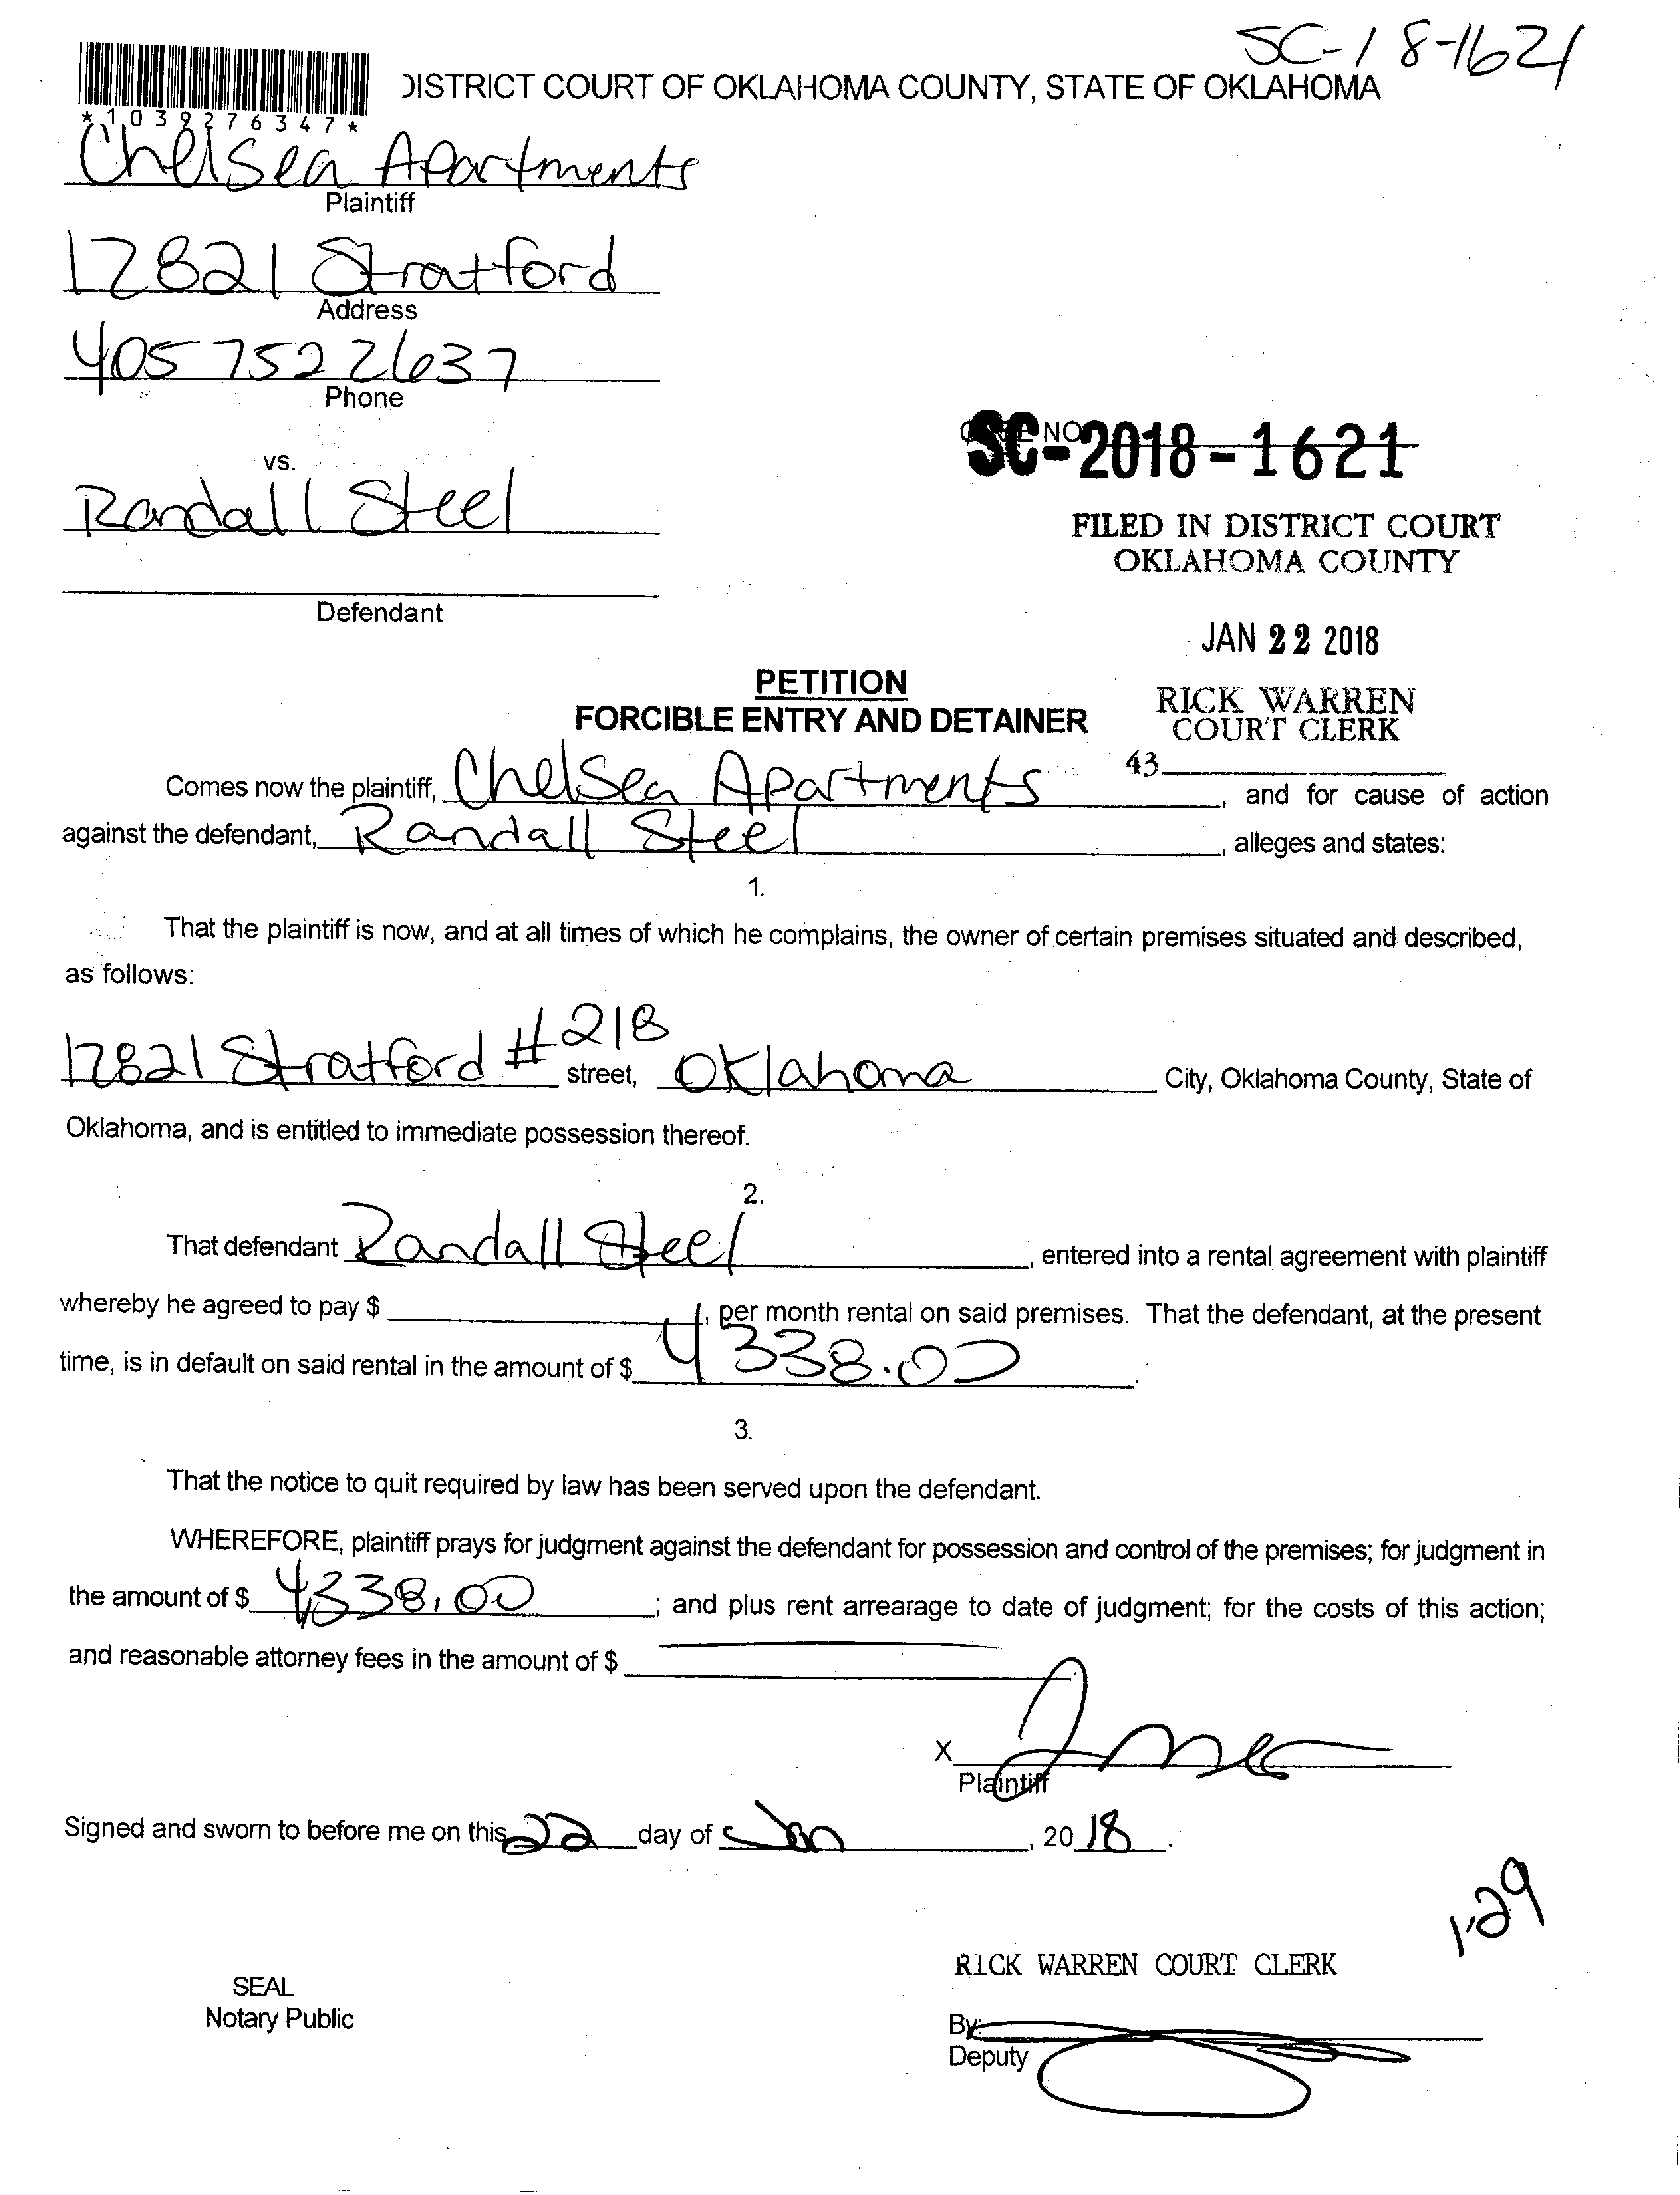 SC-18-1621
DISTRICT COURT OF OKLAHOMA COUNTY, STATE OF OKLAHOMA
*1039276347*
Chelsea Apartments
Plaintiff
12821 Stratford
Address
405 752 2637
Phone
vs.
Randall Steel
Defendant
SC-2018-1621
FILED IN DISTRICT COURT
OKLAHOMA COUNTY
JAN 22 2018
RICK WARREN
COURT CLERK
43
PETITION
FORCIBLE ENTRY AND DETAINER
Comes now the plaintiff, Chelsea Apartments, and for cause of action
against the defendant, Randall Steel, alleges and states:
1.
That the plaintiff is now, and at all times of which he complains, the owner of certain premises situated and described,
as follows:
12821 Stratford #218 street, Oklahoma City, Oklahoma County, State of
Oklahoma, and is entitled to immediate possession thereof.
2.
That defendant Randall Steel, entered into a rental agreement with plaintiff
whereby he agreed to pay $, per month rental on said premises. That the defendant, at the present
time, is in default on said rental in the amount of $ 4338.00.
3.
That the notice to quit required by law has been served upon the defendant.
WHEREFORE, plaintiff prays for judgment against the defendant for possession and control of the premises; for judgment in
the amount of $ 4338.00; and plus rent arrearage to date of judgment; for the costs of this action;
and reasonable attorney fees in the amount of $
X
Plaintiff
Signed and sworn to before me on this 22 day of Jan, 2018.
1-29
RICK WARREN COURT CLERK
SEAL
Notary Public
By:
Deputy